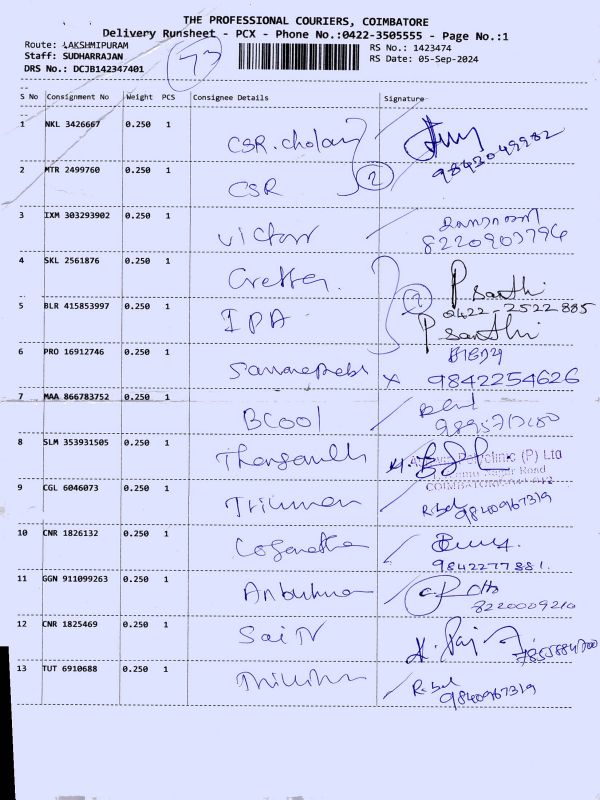 THE PROFESSIONAL COURIERS, COIMBATORE
Delivery Runsheet - PCX - Phone No.:0422-3505555 - Page No.:1
Route: LAKSHMIPURAM
Staff: SUDHARRAJAN
DRS No.: DCJB142347401
RS No.: 1423474
RS Date: 05-Sep-2024
S No Consignment No Weight PCS Consignee Details Signature
1 NKL 3426667 0.250 1 CSR. cholan
9842049982
2 MTR 2499760 0.250 1 CSR 2
3 IXM 303293902 0.250 1 Victor 8220903796
4 SKL 2561876 0.250 1 P Santhi
0422-2522885
5 BLR 415853997 0.250 1 IPA 2 P Santhi
6 PRO 16912746 0.250 1 x 9842254626
7 MAA 866783752 0.250 1 BCool
8 SLM 353931505 0.250 1 Polyclinic (P) Ltd
Nagar Road
COIMBATORE
9 CGL 6046073 0.250 1 9840967319
10 CNR 1826132 0.250 1 9842277881.
11 GGN 911099263 0.250 1 8220009210
12 CNR 1825469 0.250 1 Sai TV
13 TUT 6910688 0.250 1 9840967319